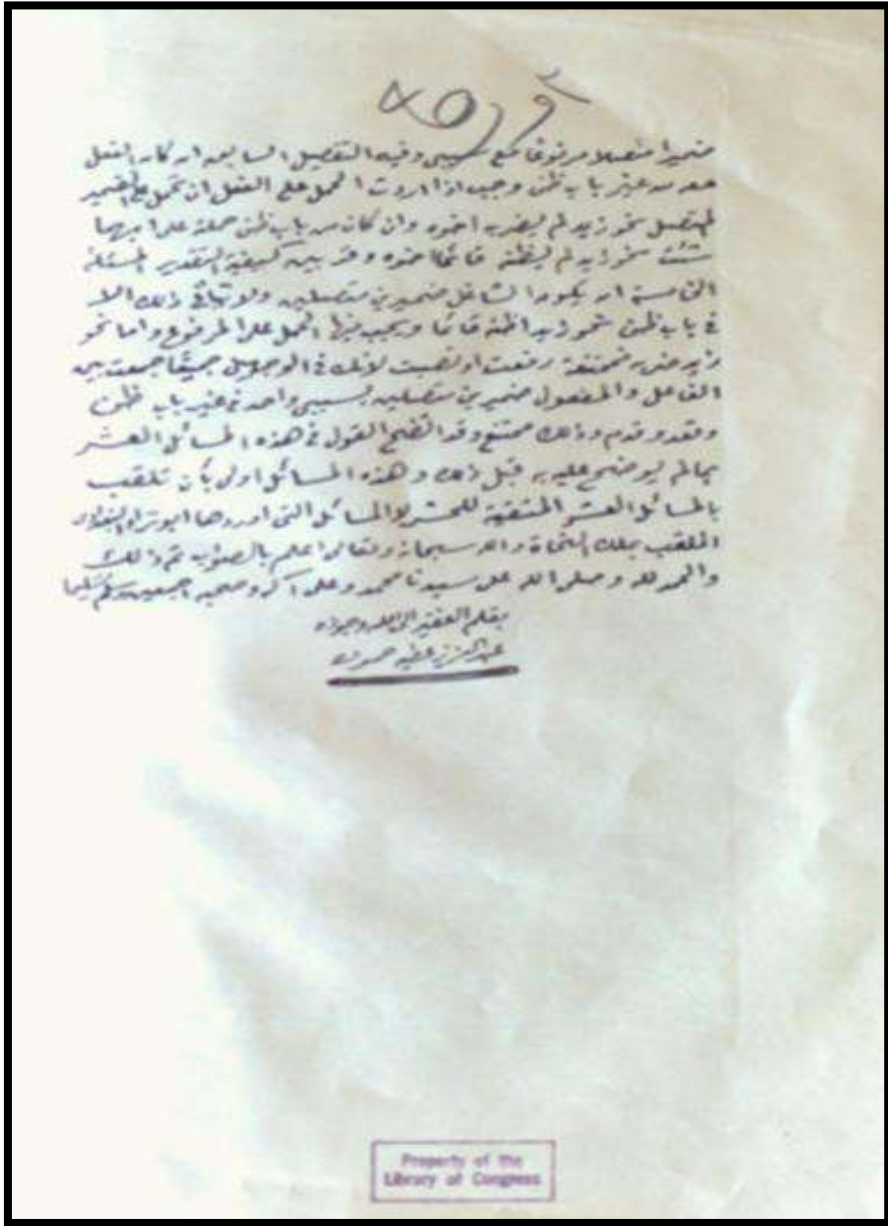 ضميرا متصلا مرفوعا مع سببى وفيه التفصيل السابق ان كان الفعل
من غير باب ظن وجب اذا اردت الحمل على الفعل ان تحمل على الضمير
المتصل نحو زيد لم يضربه اخوه وان كان من باب ظن حملته على ايهما
شئت نحو زيد لم يظنه قائما اخوه وقد بين كيفية التقدير المسئلة
الخامسة ان يكون الشاغل ضميرين متصلين ولا يتأتى ذلك الا
فى باب ظن نحو زيد اظنه قائما ويجب فيها الحمل على المرفوع واما نحو
زيد ضربه فممتنعة رفعت او نصبت لانك فى الوجهين جميعًا جمعت بين
الفاعل والمفعول ضميرين متصلين لسببى واحد فى غير باب ظن
وفقد وعدم وذلك ممتنع وقد اتضح القول فى هذه المسائل العشر
بما لم يوضح عليه قبل ذلك وهذه المسائل اولى بأن تلقب
بالمسائل العشر المتقنة للحشر لا المسائل التى اوردها ابو نزار
الملقب بملك النحاة والله سبحانه وتعالى اعلم بالصواب تم ذلك
والحمد لله وصلى الله على سيدنا محمد وعلى آله وصحبه اجمعين وسلم تسليما
بقلم الفقير الى الله
عبد العزيز عطيه
Property of the
Library of Congress